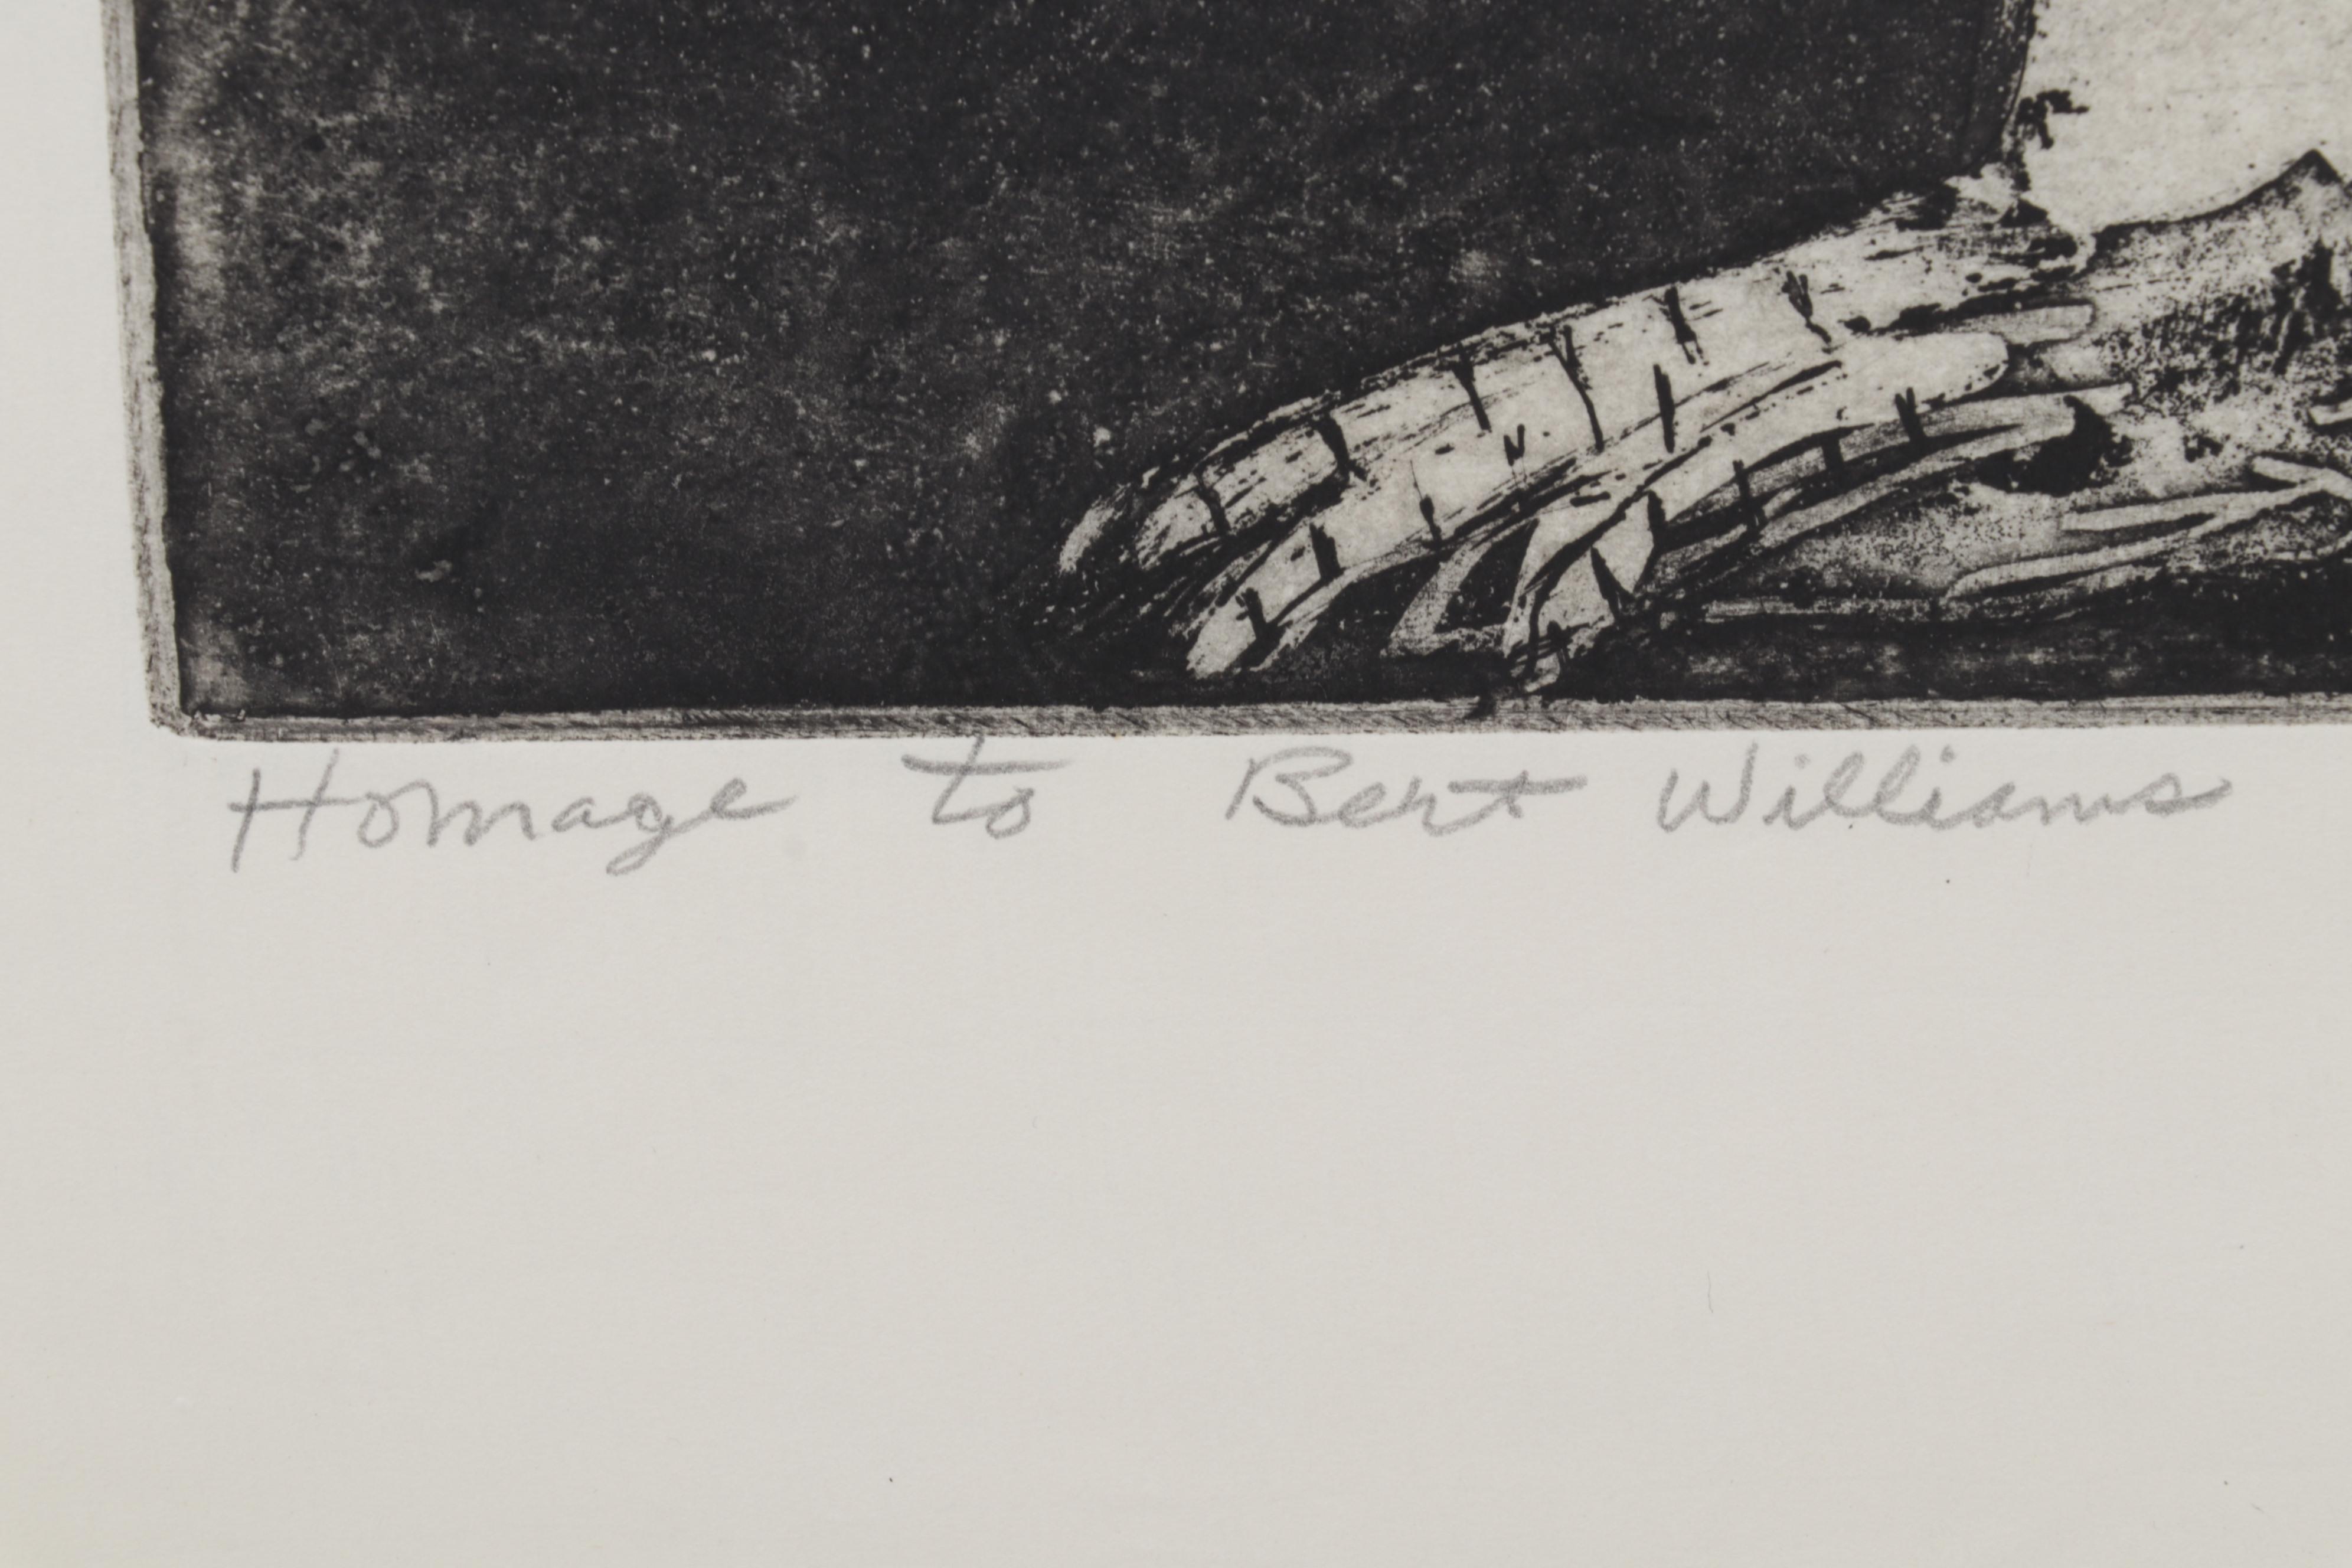 Homage to Bert Williams